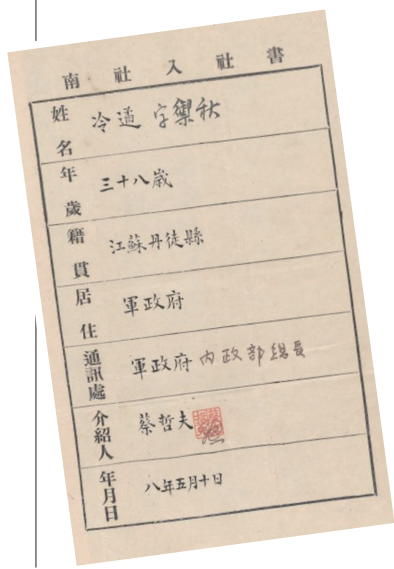 南社入社書
姓名 冷遹 字禦秋
年歲 三十八歲
籍貫 江蘇丹徒縣
居住 軍政府
通訊處 軍政府 內政部總長
介紹人 蔡哲夫
年月日 八年五月十日